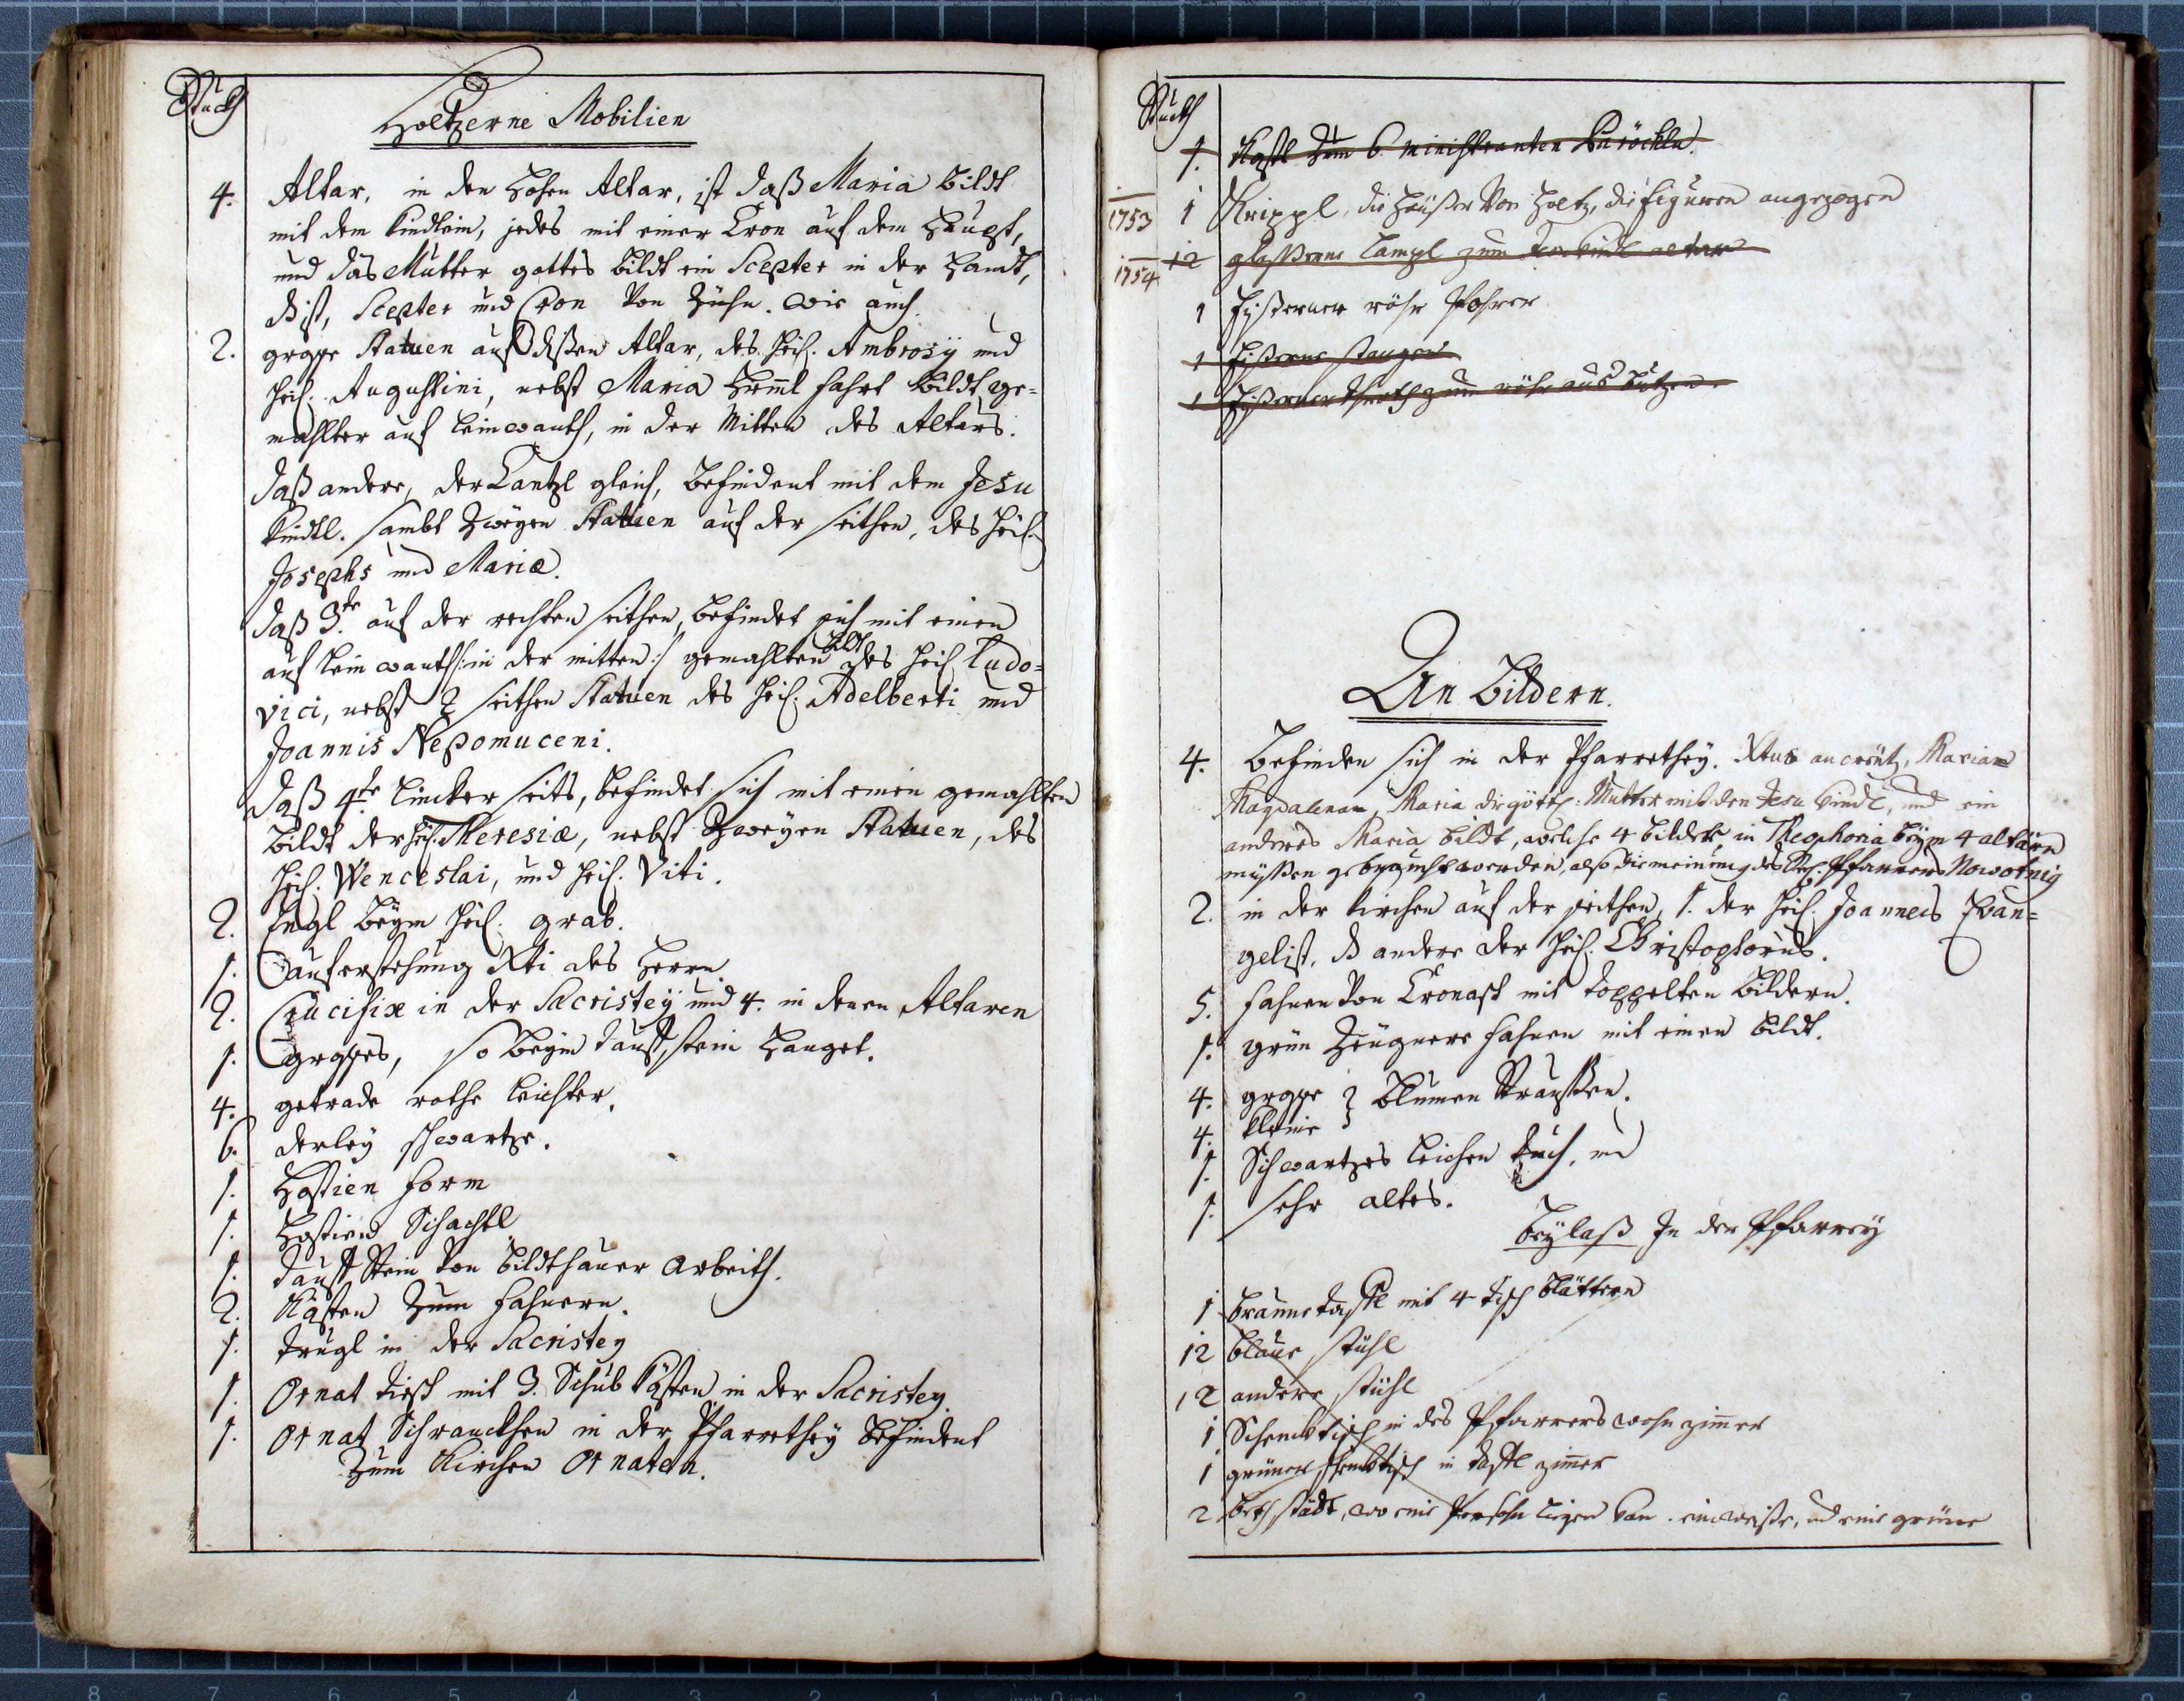 Stuckh
Holtzerne Mobilien
4. Altar, in den Hohen Altar, ist daß Maria Bildt
mit dem Kindlein, jedes mit einer Cron auf dem Haupt,
und das Mutter gottes bildt ein Scepter in der Handt,
ist, Scepter und Cron von Zühn. wie auch
2. grosse Statuen auf dißen Altar, des heil. Ambrosÿ und
heil. Augustini, nebst Maria Himmlfahrt bildt ge=
mahlter auf leinwanth, in der Mitten des Altars.
daß andere, der Cantzl gleich, befindent mit dem Jesu
Kindtl. sambt Zweÿen Statuen auf der seithen, des heil.
Josephs und Mariæ.
daß 3.te auf der rechten seithen, befindet sich mit einen
auf leinwanth /: in der mitten :/ gemahlten bildt des heil. Ludo=
vici, nebst 2 seithen Statuen des heil. Adelberti und
Joannis Nepomuceni.
daß 4.te lincker seits, befindet sich mit einen gemahlten
Bildt der heil. Theresiæ, nebst Zweÿen Statuen, des
heil. Wenceslai, und heil. Viti.
2. Engl beÿm heil. grab.
1. auferstehung Xti des Herrn.
2. Crucifix in der Sacristeÿ und 4. in denen Altaren
1. grosses, so beÿm tauffstein hanget.
4. getrade rothe leichter.
6. derleÿ schwartze.
1. Hostien form
1. Hostien Schachtl
1. tauff Stein von bildthauer Arbeith.
2. Kästen Zum Fahnern.
1. trugl in der Sacristeÿ
1. Ornat tisch mit 3. Schub Kästen in der Sacristeÿ.
1. Ornat Schranckhen in der Pfarrtheÿ befindent
Zum Kirchen Ornaten.
Stuckh
1. Kastl Zum 6. ministranten Kuröckln.
1753 1 Krippl, die Häußer von Holtz, die figuren angezogen
1754 12 glesserne Lampl zum Altar
1 Eißerner rohr
1 Eißerne stangen
1 Eißerner zum rohr aus butzen.
An Bildern.
4. Befinden sich in der Pfarrtheÿ. Xtus an creutz, Mariam
Magdalenam, Maria die göttl: Mutter mit den Jesu Kindl, und ein
anderes Maria bildt, welche 4 bilder in Theophoria beÿm 4 altären
müssen gebraucht werden, also die meinung des Pfarrers Nowotnig
2. in der Kirchen auf der seithen, 1. der heil. Joannes Evan=
gelist, andere der heil. Christophorus.
5. fahnen von Cronast mit doppelten bildern.
1. grün Zeugnere fahnen mit einen bildt.
4. grosse } Blumen Straussen.
4. kleine
1. Schwartzes leichen tuch, und
1. sehr altes.
beÿlaß In der Pfarreÿ
1 braune tafl mit 4 tisch blättern
12 blaue stühl
12 andere stühl
1 Schencktisch in des Pfarrers wohn zimmer
1 grüner schencktisch in tafl zimmer
2 bethstädt, wo eine Persohn ligen kan. ein weiße, und eine grüne